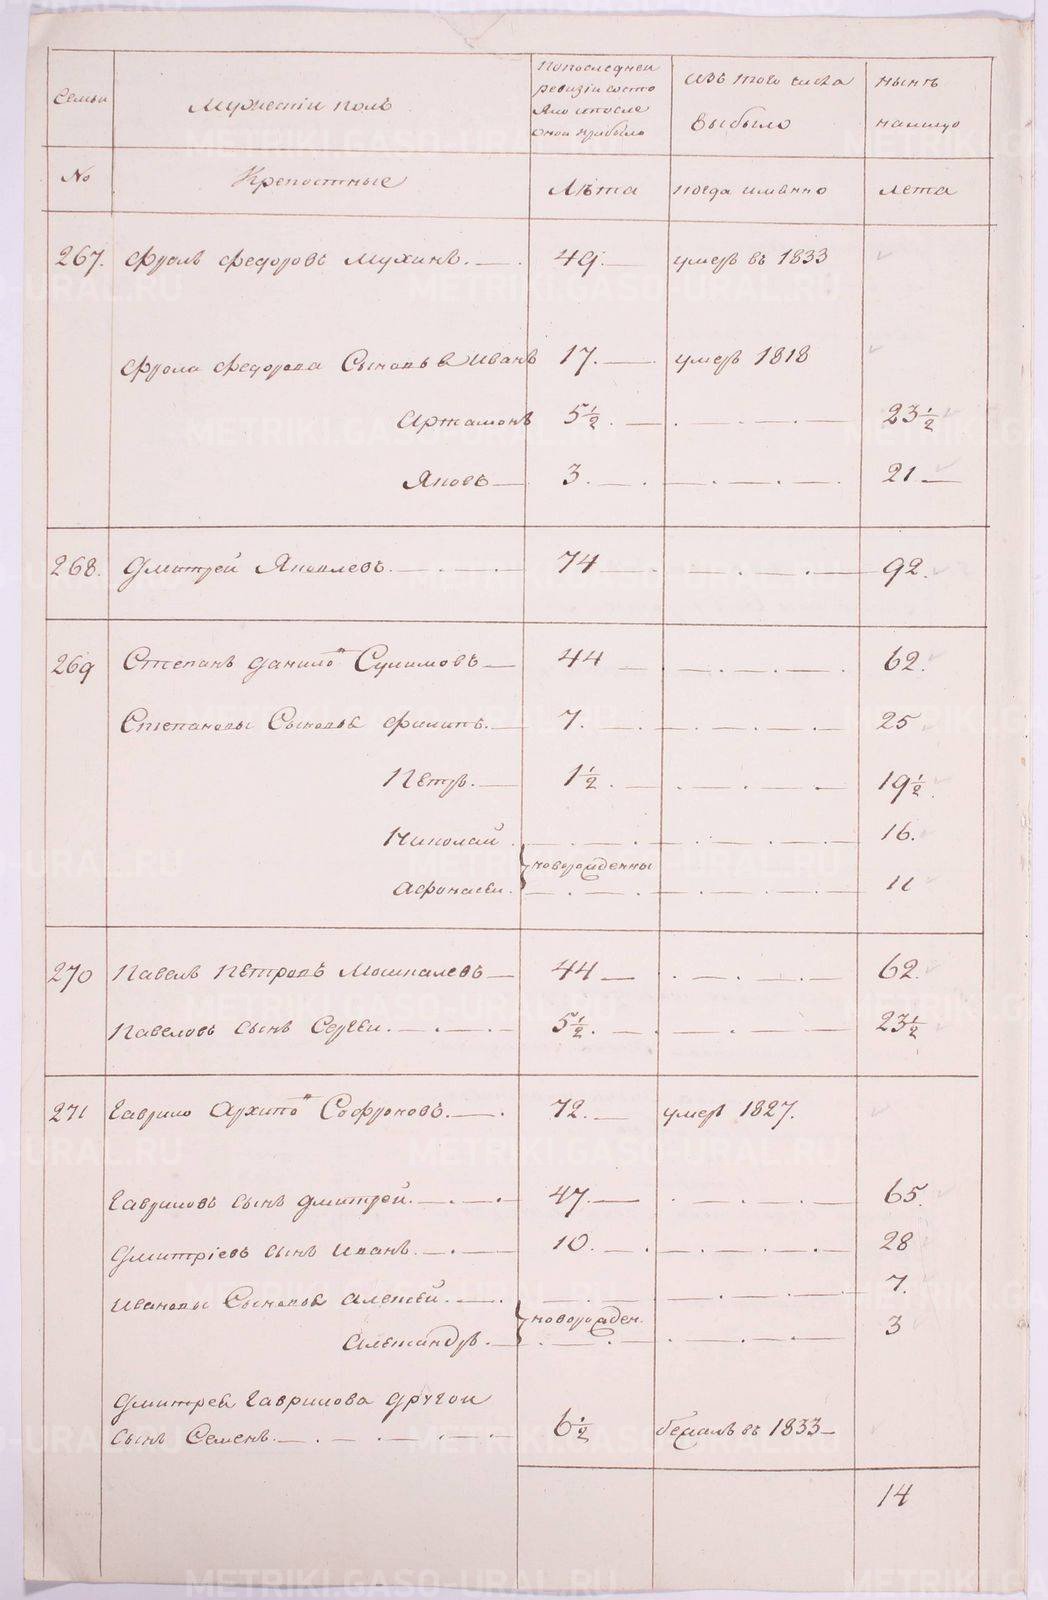 Семьи
Мужескiй полъ
По последней
ревизiи состо
яло и после
оной прибыло
изъ того числа
выбыло
ныне
налицо
No
Крепостные
Лѣта
когда именно
лета
267. Фролъ Федоровъ Мухинъ. 49. умеръ въ 1833
Фрола Федорова Сыновья Иванъ 17. умеръ 1818
Артамонъ 5 1/2. 23 1/2
Яковъ 3. 21
268. Дмитрей Яковлевъ. 74 92.
269 Степанъ Данило" Сулимовъ 44 62.
Степановы Сыновья Филипъ. 7. 25
Петръ. 1 1/2. 19 1/2.
Николай 16.
новорожденны
Афонасей. 11
270 Павелъ Петровъ Мошкалевъ 44 62.
Павеловъ сынъ Сергей. 5 1/2. 23 1/2
271 Гаврило Архипо" Софроновъ. 72. умеръ 1827.
Гавриловъ сынъ Дмитрей. 47. 65.
Дмитрiевъ сынъ Иванъ. 10. 28
Ивановы Сыновья Алексей. 7.
новорожден.
Александръ. 3
Дмитрея Гаврилова другой
сынъ Семенъ. 6 1/2 бежалъ въ 1833
14
METRIKI.GASO-URAL.RU